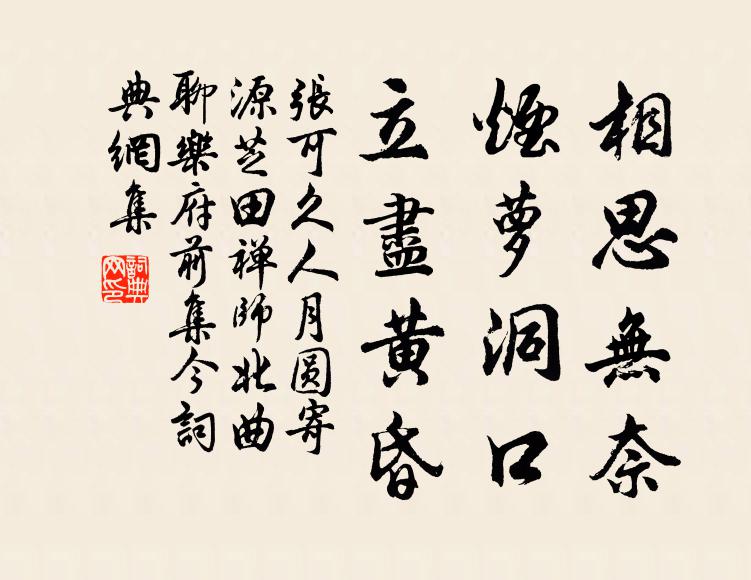 相思無奈
煙萝洞口
立盡黄昏
張可久人月圆寄
源芝田禅師北曲
聊樂府前集今詞
典網集
詞典
网印